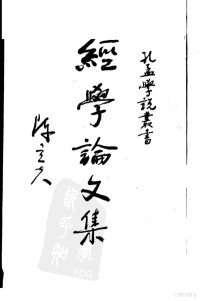 孔孟學說叢書
經學論文集
陳立夫
PDG